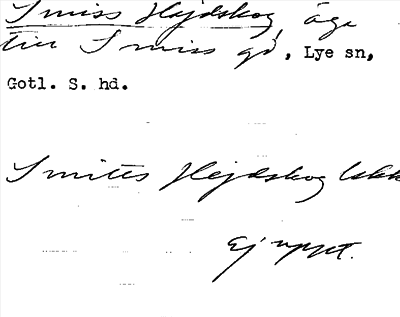 Smiss Hejdskog, äga
till Smiss gd, Lye sn,
Gotl. S. hd.
Smitts Hejdskog
Ej uppt.